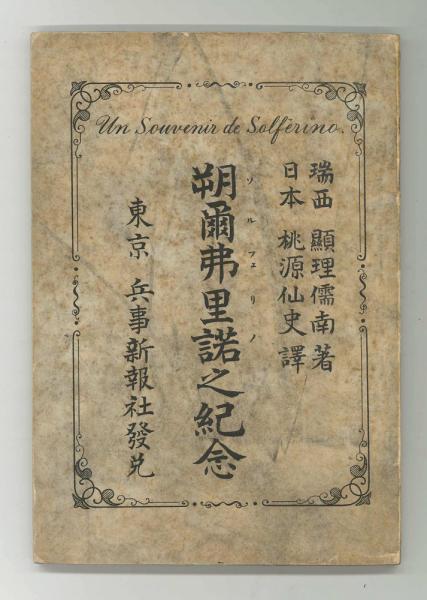 Un Souvenir de Solférino.
瑞西 顯理儒南著
日本 桃源仙史譯
朔爾弗里諾之紀念
ソルフェリノ
東京 兵事新報社發兌